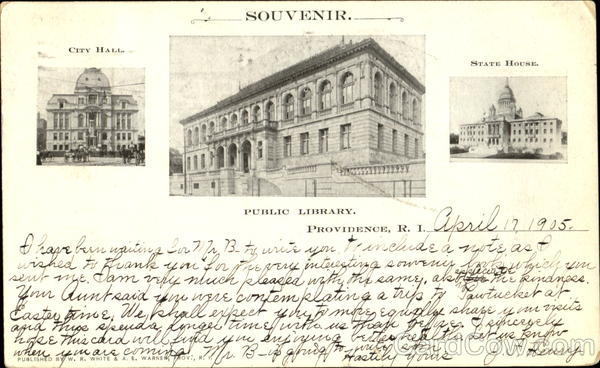 SOUVENIR.
CITY HALL.
STATE HOUSE.
PUBLIC LIBRARY.
PROVIDENCE, R. I. April 17, 1905.
I have been waiting for Mr. B to write you to include a note as I
wished to thank you for the very interesting souvenir book which you
sent me. I am very much pleased with the same, also appreciate the kindness.
Your Aunt said you were contemplating a trip to Pawtucket at
Easter time. We shall expect you to more equally share your visits
and thus spend a longer time with us than before. I sincerely
hope this card will find you enjoying better health. Let us know
when you are coming. Mr. B is going to write
Hastily Yours
Henry
PUBLISHED BY W. R. WHITE & A. E. WARNER, PROV., R. I.
CardCow.com